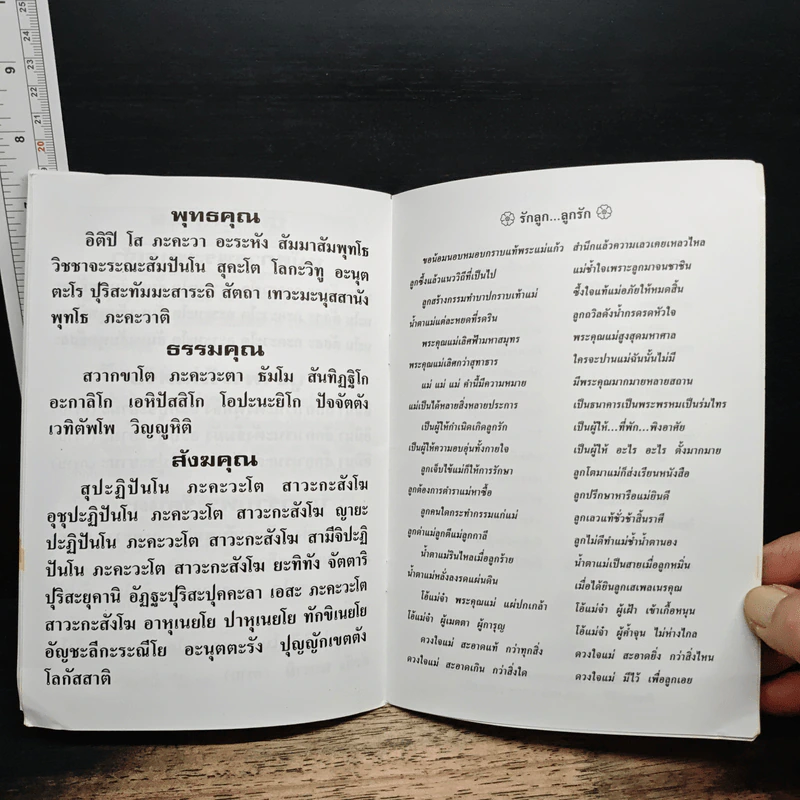 พุทธคุณ
อิติปิ โส ภะคะวา อะระหัง สัมมาสัมพุทโธ
วิชชาจะระณะสัมปันโน สุคะโต โลกะวิทู อะนุต
ตะโร ปุริสะทัมมะสาระถิ สัตถา เทวะมะนุสสานัง
พุทโธ ภะคะวาติ
ธรรมคุณ
สวากขาโต ภะคะวะตา ธัมโม สันทิฏฐิโก
อะกาลิโก เอหิปัสสิโก โอปะนะยิโก ปัจจัตตัง
เวทิตัพโพ วิญญูหิติ
สังฆคุณ
สุปะฏิปันโน ภะคะวะโต สาวะกะสังโฆ
อุชุปะฏิปันโน ภะคะวะโต สาวะกะสังโฆ ญายะ
ปะฏิปันโน ภะคะวะโต สาวะกะสังโฆ สามีจิปะฏิ
ปันโน ภะคะวะโต สาวะกะสังโฆ ยะทิทัง จัตตาริ
ปุริสะยุคานิ อัฏฐะปุริสะปุคคะลา เอสะ ภะคะวะโต
สาวะกะสังโฆ อาหุเนยโย ปาหุเนยโย ทักขิเนยโย
อัญชะลีกะระณีโย อะนุตตะรัง ปุญญักเขตตัง
โลกัสสาติ
รักลูก...ลูกรัก
ขอน้อมนอบหมอบกราบแท้พระแม่แก้ว สำนึกแล้วความเลวเคยเหลวไหล
ลูกซึ้งแล้วแนววิถีที่เป็นไป แม่ช้ำใจเพราะลูกมาจนชาชิน
ลูกสร้างกรรมทำบาปกราบเท้าแม่ ซึ้งใจแท้แม่อภัยให้หมดสิ้น
น้ำตาแม่แต่ละหยดที่รดริน ลูกถวิลดังน้ำกรดรดหัวใจ
พระคุณแม่เลิศฟ้ามหาสมุทร พระคุณแม่สูงสุดมหาศาล
พระคุณแม่เลิศกว่าสุทาธาร ใครจะปานแม่ฉันนั้นไม่มี
แม่ แม่ แม่ คำนี้มีความหมาย มีพระคุณมากมายหลายสถาน
แม่เป็นได้หลายสิ่งหลายประการ เป็นธนาคารเป็นพระพรหมเป็นร่มไทร
เป็นผู้ให้กำเนิดเกิดลูกรัก เป็นผู้ให้...ที่พัก...พิงอาศัย
เป็นผู้ให้ความอบอุ่นทั้งกายใจ เป็นผู้ให้ อะไร อะไร ตั้งมากมาย
ลูกเจ็บไข้แม่ก็ให้การรักษา ลูกโตมาแม่ก็ส่งเรียนหนังสือ
ลูกต้องการตำราแม่หาซื้อ ลูกปรึกษาหารือแม่ยินดี
ลูกคนใดกระทำกรรมแก่แม่ ลูกเลวแท้ชั่วช้าสิ้นราศี
ลูกด่าแม่ลูกตีแม่ลูกกาลี ลูกไม่ดีทำแม่ช้ำน้ำตานอง
น้ำตาแม่รินไหลเมื่อลูกร้าย น้ำตาแม่เป็นสายเมื่อลูกหมิ่น
น้ำตาแม่หลั่งลงรดแผ่นดิน เมื่อได้ยินลูกเสเพลเนรคุณ
โอ้แม่จ๋า พระคุณแม่ แผ่ปกเกล้า โอ้แม่จ๋า ผู้เฝ้า เข้าเกื้อหนุน
โอ้แม่จ๋า ผู้เมตตา ผู้การุญ โอ้แม่จ๋า ผู้ค้ำจุน ไม่ห่างไกล
ดวงใจแม่ สะอาดแท้ กว่าทุกสิ่ง ดวงใจแม่ สะอาดยิ่ง กว่าสิ่งไหน
ดวงใจแม่ สะอาดเกิน กว่าสิ่งใด ดวงใจแม่ มีไว้ เพื่อลูกเอย